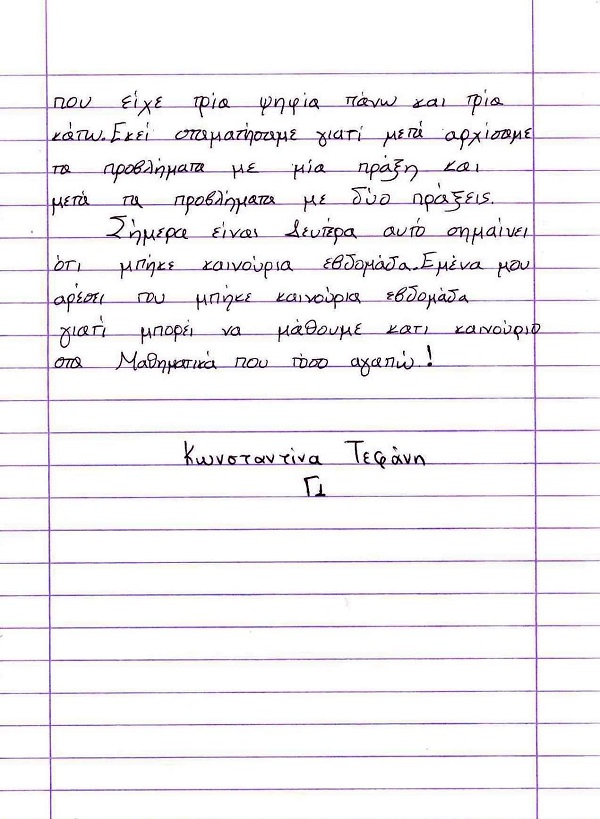 που είχε τρία ψηφία πάνω και τρία
κάτω. Εκεί σταματήσαμε γιατί μετά αρχίσαμε
τα προβλήματα με μία πράξη και
μετά τα προβλήματα με δύο πράξεις.
Σήμερα είναι Δευτέρα αυτό σημαίνει
ότι μπήκε καινούρια εβδομάδα. Εμένα μου
αρέσει που μπήκε καινούρια εβδομάδα
γιατί μπορεί να μάθουμε κατι καινούριο
στα Μαθηματικά που τόσο αγαπώ!
Κωνσταντίνα Τεφάνη
Γ1